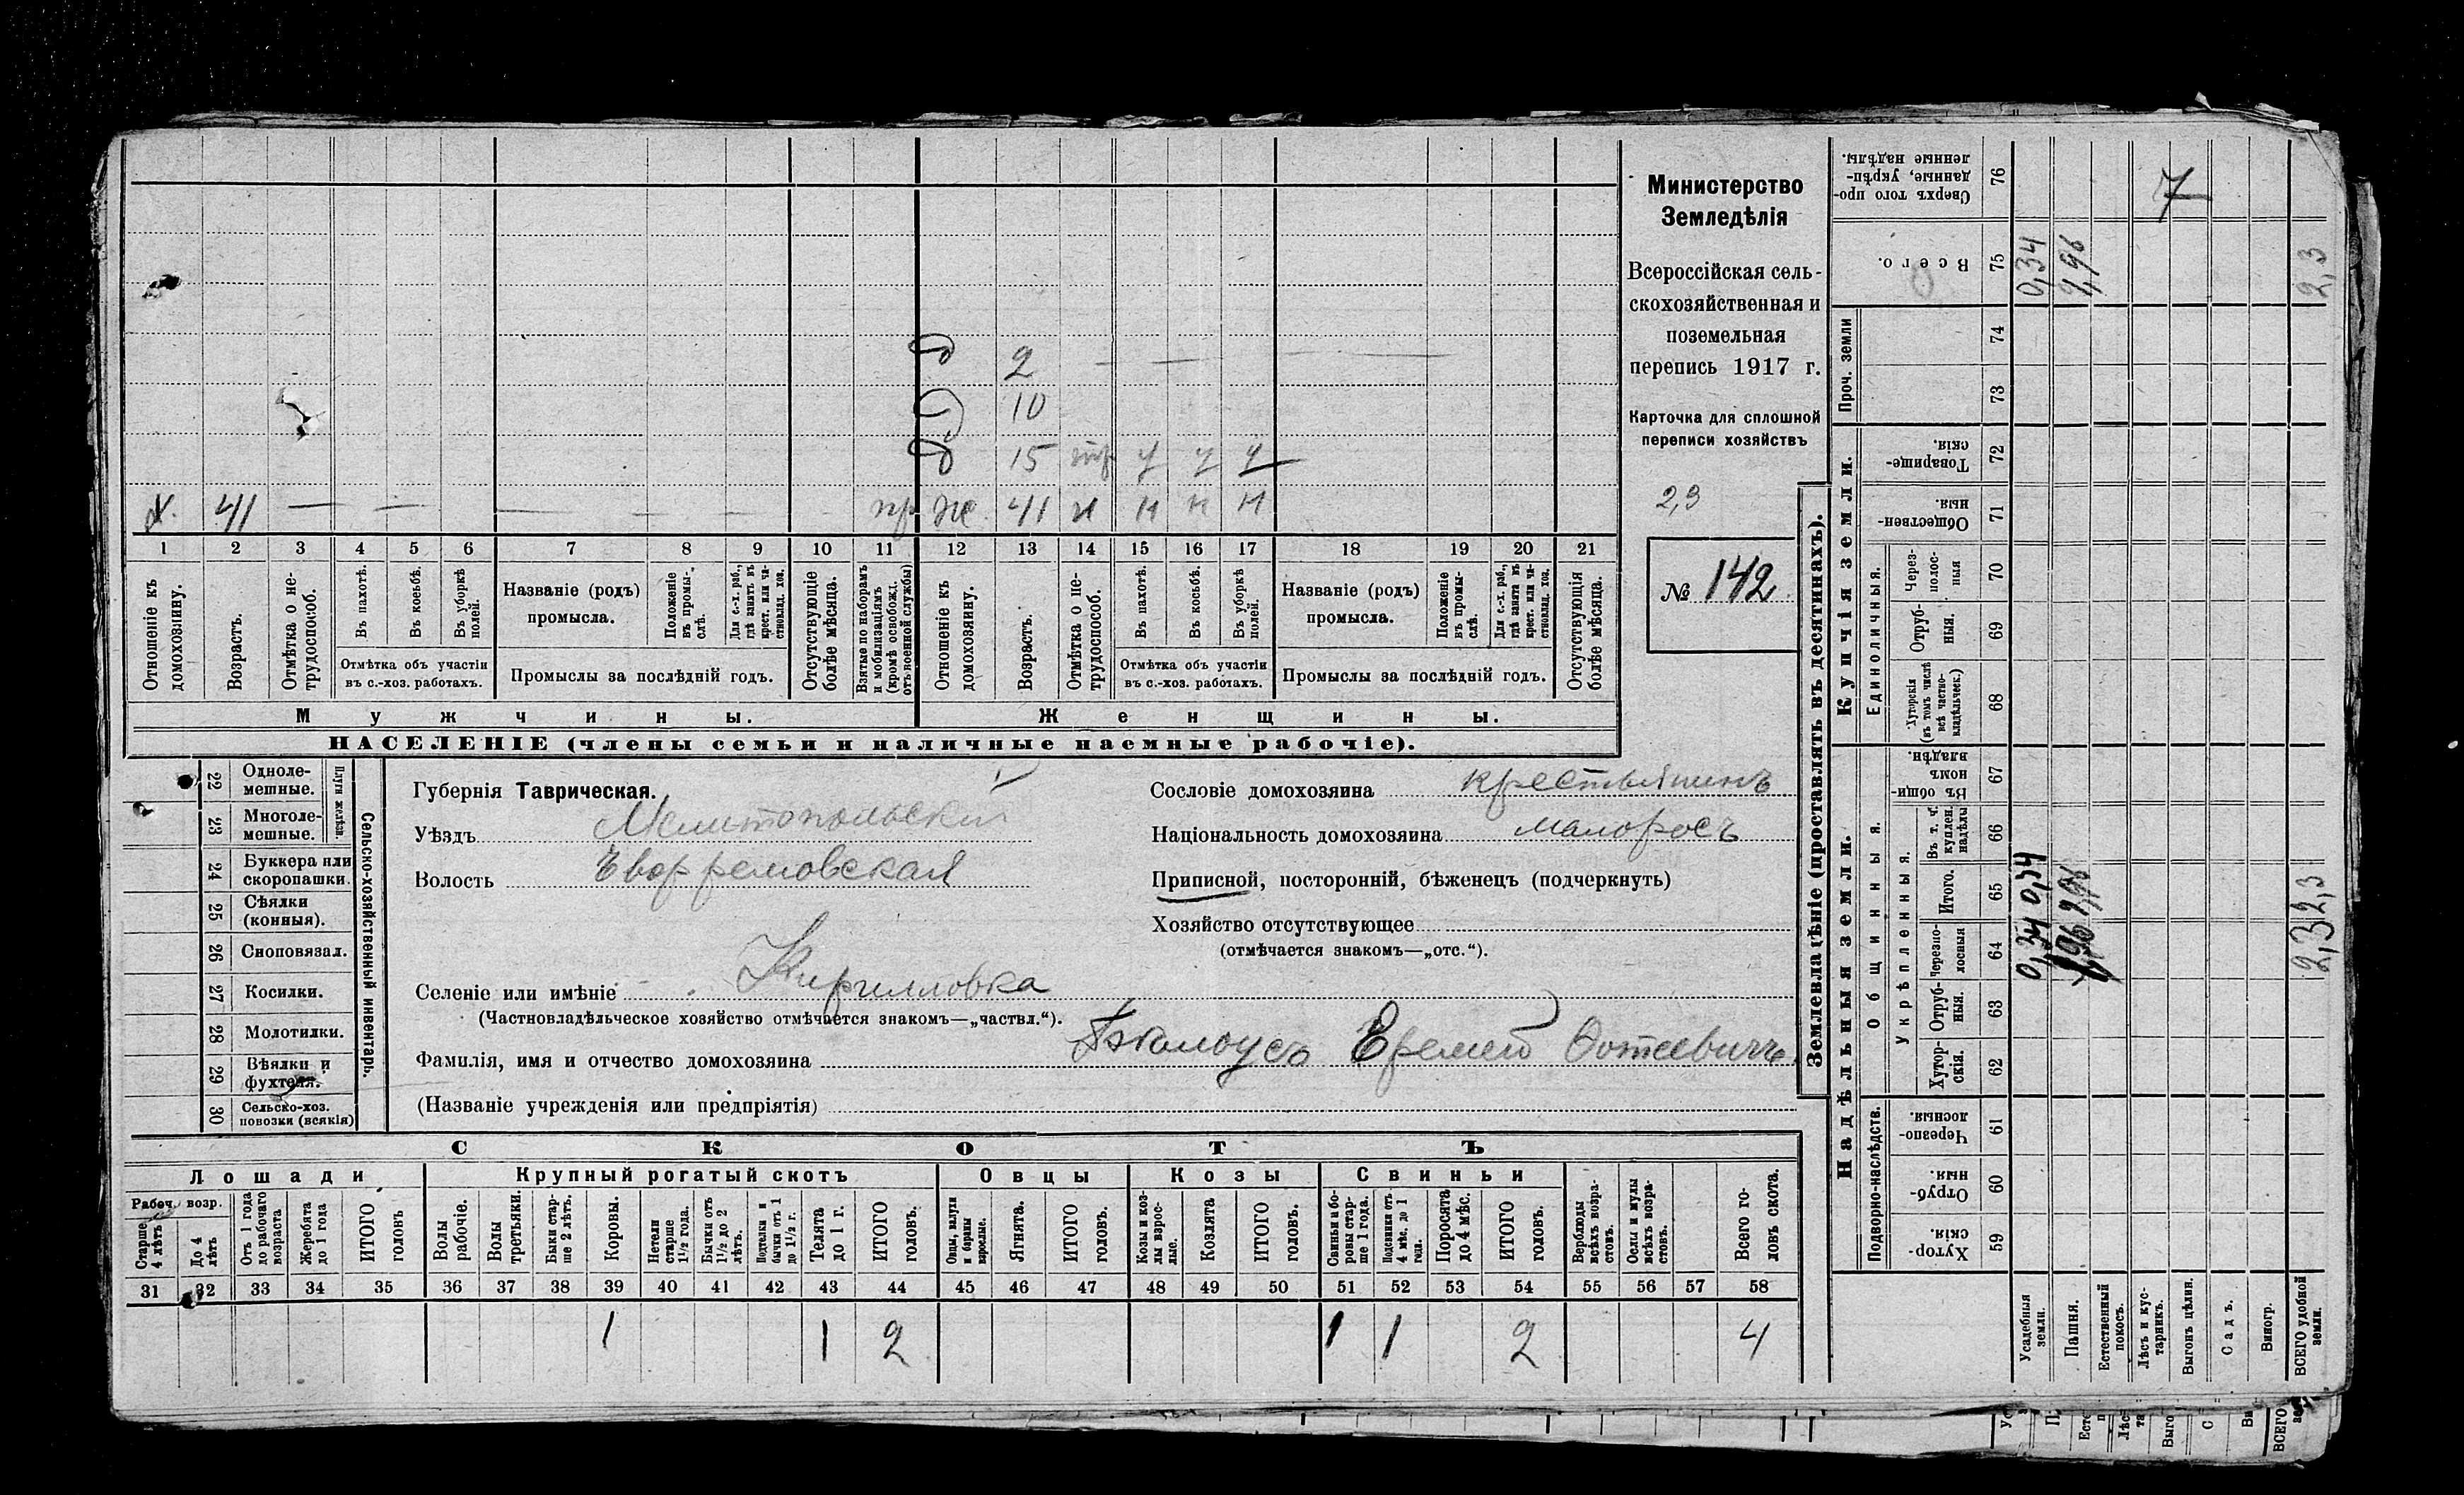 Министерство
Земледѣлія
Всероссійская сель-
скохозяйственная и
поземельная
перепись 1917 г.
Карточка для сплошной
переписи хозяйствъ
2,3
№ 142
д 2 — — — —
д 10
д 15 тр у у у
х. 41 — — — — — пр ж. 41 н н н н
1 2 3 4 5 6 7 8 9 10 11 12 13 14 15 16 17 18 19 20 21
Отношеніе къ домохозяину.
Возрастъ.
Отмѣтка о не-трудоспособ.
Въ пахотѣ.
Въ косьбѣ.
Въ уборкѣ полей.
Отмѣтка объ участіи
въ с.-хоз. работахъ.
Названіе (родъ)
промысла.
Положеніе въ промы-слѣ.
Для с.-х. раб., гдѣ занятъ въ крест. или ча-стновлад. хоз.
Промыслы за послѣдній годъ.
Отсутствующіе болѣе мѣсяца.
Взятые по наборамъ и мобилизаціямъ (кромѣ освобожд. отъ военной службы)
Отношеніе къ домохозяину.
Возрастъ.
Отмѣтка о не-трудоспособ.
Въ пахотѣ.
Въ косьбѣ.
Въ уборкѣ полей.
Отмѣтка объ участіи
въ с.-хоз. работахъ.
Названіе (родъ)
промысла.
Положеніе въ промы-слѣ.
Для с.-х. раб., гдѣ занятъ въ крест. или ча-стновлад. хоз.
Промыслы за послѣдній годъ.
Отсутствующія болѣе мѣсяца.
Мужчины.
Женщины.
НАСЕЛЕНІЕ (члены семьи и наличные наемные рабочіе).
Сельско-хозяйственный инвентарь.
Плуги желѣзн.
22 Одноле-мешные.
23 Многоле-мешные.
24 Буккера или скоропашки.
25 Сѣялки (конныя).
26 Сноповязал.
27 Косилки.
28 Молотилки.
29 Вѣялки и фухтеля.
30 Сельско-хоз. повозки (всякія)
Губернія Таврическая.
Уѣздъ Мелитопольскій
Волость Ефремовская
Селеніе или имѣніе Кирилловка
(Частновладѣльческое хозяйство отмѣчается знакомъ—„частвл.“).
Фамилія, имя и отчество домохозяина Бѣлоусъ Еремей Фотеевичъ
(Названіе учрежденія или предпріятія)
Сословіе домохозяина крестьянинъ
Національность домохозяина малоросъ
Приписной, посторонній, бѣженецъ (подчеркнуть)
Хозяйство отсутствующее
(отмѣчается знакомъ—„отс.“).
СКОТЪ
Лошади
Крупный рогатый скотъ
Овцы
Козы
Свиньи
Рабоч. возр.
Старше 4 лѣтъ
До 4 лѣтъ
Отъ 1 года до рабочаго возраста
Жеребята до 1 года
ИТОГО головъ
Волы рабочіе.
Волы третьяки.
Быки стар-ше 2 лѣтъ.
Коровы.
Нетели старше 1½ года.
Бычки отъ 1½ до 2 лѣтъ.
Подтелки и бычки отъ 1 до 1½ г.
Телята до 1 г.
ИТОГО головъ.
Овцы, валухи и бараны взрослые.
Ягнята.
ИТОГО головъ.
Козы и коз-лы взрос-лые.
Козлята
ИТОГО головъ.
Свиньи и бо-ровы стар-ше 1 года.
Подсвинки отъ 4 мѣс. до 1 года.
Поросята до 4 мѣс.
ИТОГО головъ.
Верблюды всѣхъ возра-стовъ.
Ослы и мулы всѣхъ возра-стовъ.
Всего го-ловъ скота.
31 32 33 34 35 36 37 38 39 40 41 42 43 44 45 46 47 48 49 50 51 52 53 54 55 56 57 58
1 1 2 1 1 2 4
Землевладѣніе (проставлять въ десятинахъ).
Надѣльныя земли.
Купчія земли.
Проч. земли
Подворно-наслѣдств.
Общинныя.
Укрѣпленныя.
Единоличныя.
Сверхъ того про-данные, укрѣп-ленные надѣлы. 76 7
Всего. 75 0,34 1,96 2,3
74
73
Товарище-скія. 72
Обществен-ныя. 71
Через-полос-ныя 70
Отруб-ныя. 69
Хуторскія (въ томъ числѣ всѣ частно-владѣльческ.) 68
Въ общин-номъ владѣн. 67
Въ т. ч. куплен. надѣлы 66
Итого. 65 0,34 1,96 2,3
Черезпо-лосныя 64 0,34 1,96 2,3
Отруб-ныя. 63
Хутор-скія. 62
Черезпо-лосныя. 61
Отруб-ныя. 60
Хутор-скія. 59
Усадебныя земли.
Пашня.
Естественный покосъ.
Лѣсъ и кус-тарникъ.
Выгонъ цѣлин.
Садъ.
Виногр.
ВСЕГО удобной земли.